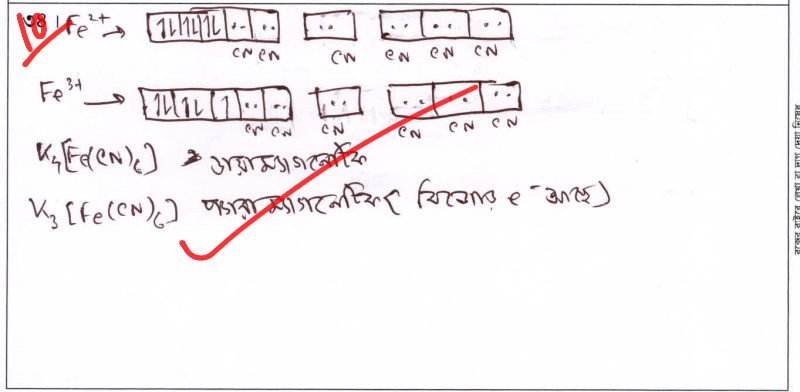 10
৩৪। Fe²⁺ → 1L 1L 1L .. .. .. .. .. ..
CN CN CN CN CN CN
Fe³⁺ → 1L 1L 1 .. .. .. .. .. ..
CN CN CN CN CN CN
K₄[Fe(CN)₆] → ডায়াম্যাগনেটিক
K₃[Fe(CN)₆] প্যারাম্যাগনেটিক ( বিজোর e⁻ আছে)